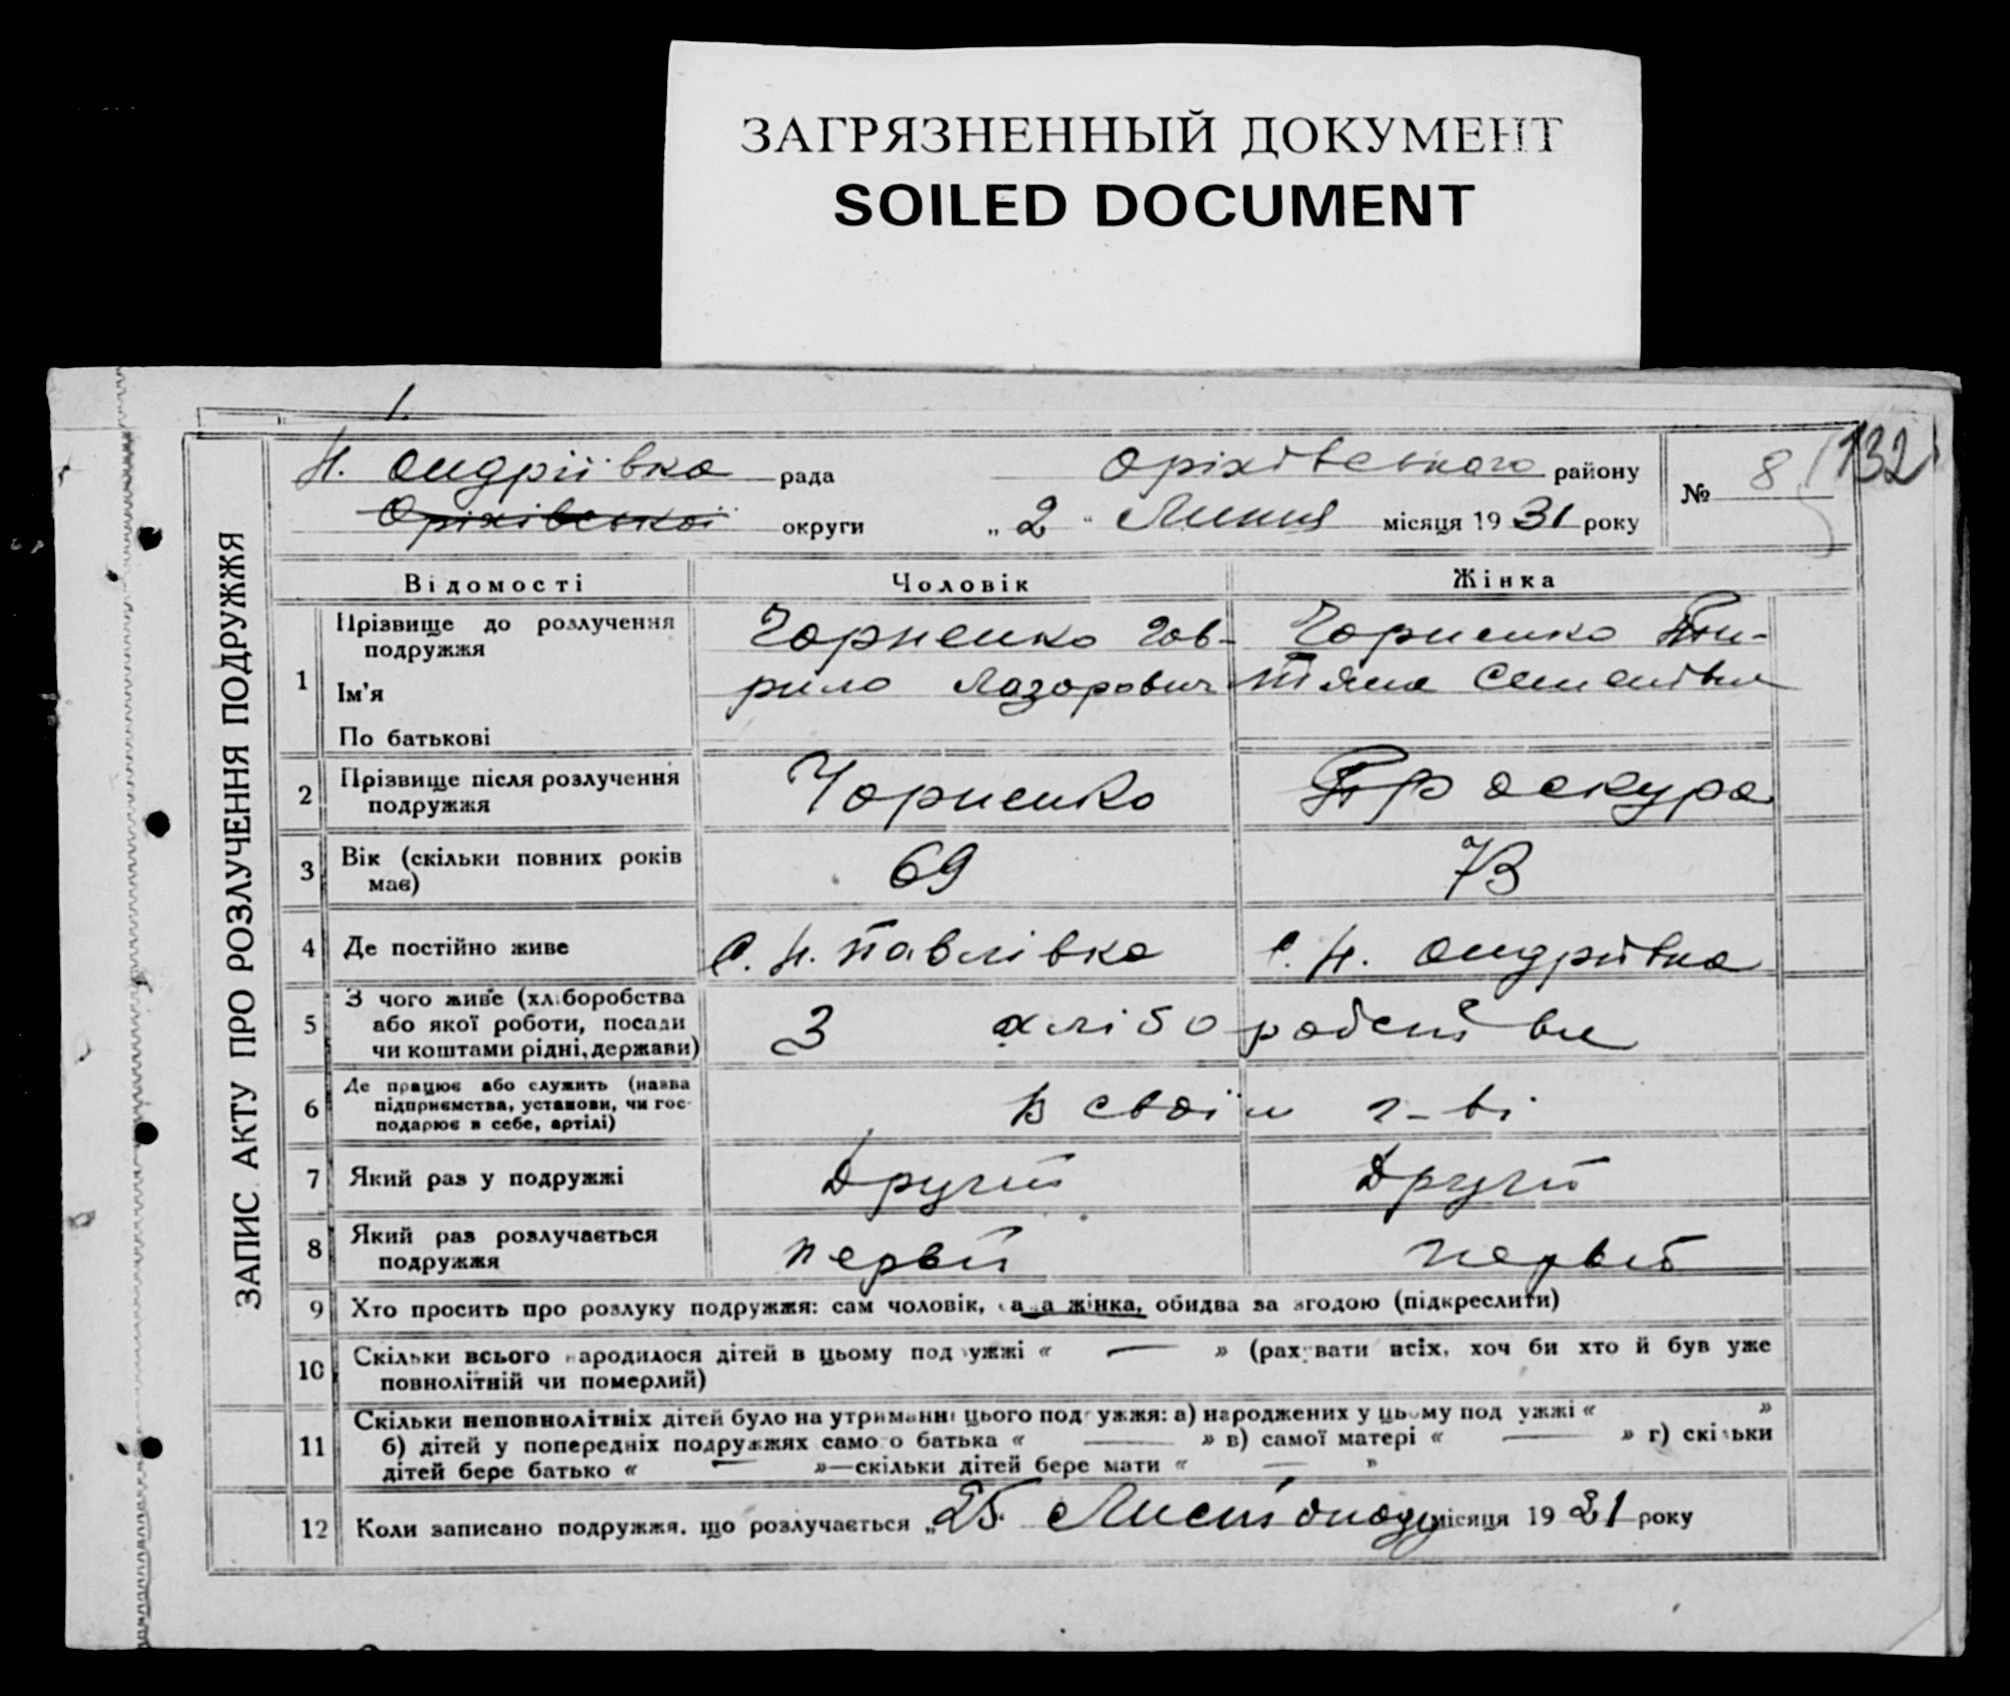 ЗАГРЯЗНЕННЫЙ ДОКУМЕНТ
SOILED DOCUMENT
1.
Н. Андріївка рада Оріхівського району № 8 132
Оріхівської округи „ 2 " Липня місяця 19 31 року
ЗАПИС АКТУ ПРО РОЗЛУЧЕННЯ ПОДРУЖЖЯ
Відомості Чоловік Жінка
1 Прізвище до розлучення подружжя Чорненко Гав- Чорненко
Ім'я рило Лазарович тяна Семенівна
По батькові
2 Прізвище після розлучення Чорненко Проскура
подружжя
3 Вік (скільки повних років 69 73
має)
4 Де постійно живе С. Н. Павлівка С. Н. Андрівка
5 З чого живе (хліборобства
або якої роботи, посади З хліборобства
чи коштами рідні, держави)
6 Де працює або служить (назва
підприємства, установи, чи гос- В своїм г-ві
подарює в себе, артілі)
7 Який раз у подружжі Другий Другий
8 Який раз розлучається первий первий
подружжя
9 Хто просить про розлуку подружжя: сам чоловік, сама жінка, обидва за згодою (підкреслити)
10 Скільки всього народилося дітей в цьому подружжі « — » (рахувати всіх, хоч би хто й був уже
повнолітній чи померлий)
11 Скільки неповнолітніх дітей було на утриманні цього подружжя: а) народжених у цьому подружжі « »
б) дітей у попередніх подружжях самого батька « — » в) самої матері « — » г) скільки
дітей бере батько « — »—скільки дітей бере мати « — »
12 Коли записано подружжя, що розлучається „ 25 " Листопаду місяця 19 21 року